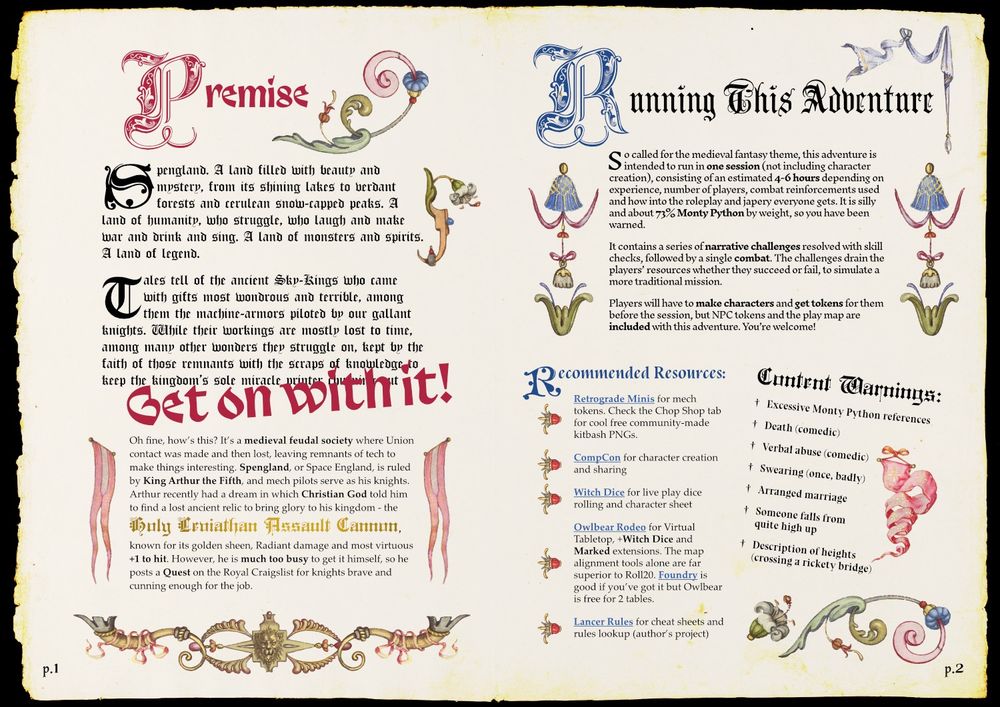 Premise
Spengland. A land filled with beauty and
mystery, from its shining lakes to verdant
forests and cerulean snow-capped peaks. A
land of humanity, who struggle, who laugh and make
war and drink and sing. A land of monsters and spirits.
A land of legend.
Tales tell of the ancient Sky-Kings who came
with gifts most wondrous and terrible, among
them the machine-armors piloted by our gallant
knights. While their workings are mostly lost to time,
among many other wonders they struggle on, kept by the
faith of those remnants with the scraps of knowledge to
keep the kingdom's sole miracle printer churning out
Get on with it!
Oh fine, how's this? It's a medieval feudal society where Union
contact was made and then lost, leaving remnants of tech to
make things interesting. Spengland, or Space England, is ruled
by King Arthur the Fifth, and mech pilots serve as his knights.
Arthur recently had a dream in which Christian God told him
to find a lost ancient relic to bring glory to his kingdom - the
Holy Leviathan Assault Cannon,
known for its golden sheen, Radiant damage and most virtuous
+1 to hit. However, he is much too busy to get it himself, so he
posts a Quest on the Royal Craigslist for knights brave and
cunning enough for the job.
p.1
Running This Adventure
So called for the medieval fantasy theme, this adventure is
intended to run in one session (not including character
creation), consisting of an estimated 4-6 hours depending on
experience, number of players, combat reinforcements used
and how into the roleplay and japery everyone gets. It is silly
and about 73% Monty Python by weight, so you have been
warned.
It contains a series of narrative challenges resolved with skill
checks, followed by a single combat. The challenges drain the
players' resources whether they succeed or fail, to simulate a
more traditional mission.
Players will have to make characters and get tokens for them
before the session, but NPC tokens and the play map are
included with this adventure. You're welcome!
Recommended Resources:
Retrograde Minis for mech
tokens. Check the Chop Shop tab
for cool free community-made
kitbash PNGs.
CompCon for character creation
and sharing
Witch Dice for live play dice
rolling and character sheet
Owlbear Rodeo for Virtual
Tabletop, +Witch Dice and
Marked extensions. The map
alignment tools alone are far
superior to Roll20. Foundry is
good if you've got it but Owlbear
is free for 2 tables.
Lancer Rules for cheat sheets and
rules lookup (author's project)
Content Warnings:
† Excessive Monty Python references
† Death (comedic)
† Verbal abuse (comedic)
† Swearing (once, badly)
† Arranged marriage
† Someone falls from
quite high up
† Description of heights
(crossing a rickety bridge)
p.2